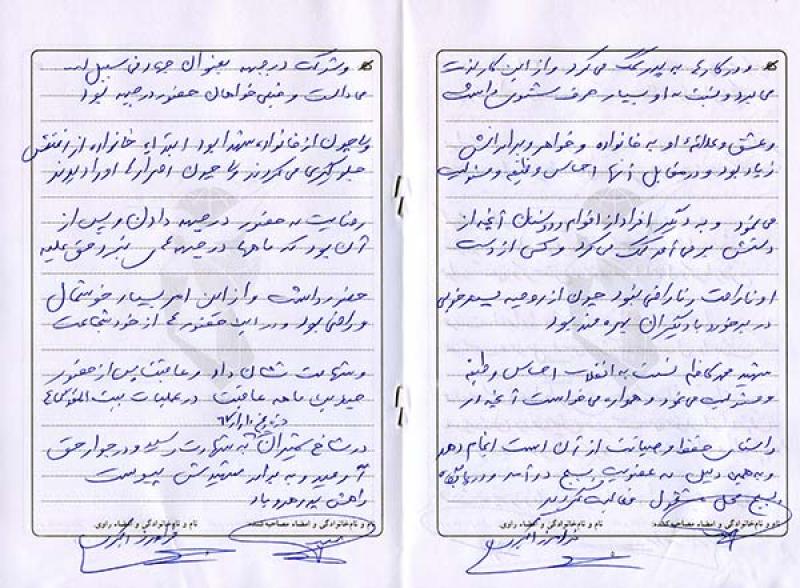 و در کارها به پدر کمک می کرد و از این کار لذت
می برد و نسبت به او بسیار حرف شنوی داشت
و عشق و علاقه او به خانواده و خواهر و برادرانش
زیاد بود و در مقابل آنها احساس وظیفه و مسئولیت
می نمود و به دیگر افراد از اقوام و دوستان آنچه از
دستش بر می آمد کمک می کرد و کسی از دست
او ناراحت و ناراضی نبود چون از روحیه بسیار خوبی
در برخورد با دیگران بهره مند بود
شهید محمد کاظم نسبت به انقلاب احساس وظیفه
و مسئولیت می نمود و همواره می خواست آنچه در
راستای حفظ و صیانت از آن است انجام دهد
و به همین دلیل به عضویت بسیج در آمد و در پایگاه
بسیج محل مشغول فعالیت گردید
نام و نام خانوادگی و امضاء مصاحبه کننده: نام و نام خانوادگی و امضاء راوی:
و شرکت در جبهه بعنوان جهاد فی سبیل الله
می دانست و خیلی خواهان حضور در جبهه بود
ولی چون از خانواده شهدا بود ابتداء خانواده از رفتنش
جلوگیری می کردند ولی چون اصرارهای او را دیدند
رضایت به حضور در جبهه دادن و پس از
آن بود که ماهها در جبهه های نبرد حق علیه
حضور داشت و از این امر بسیار خوشحال
و راضی بود و در این حضور ها از خود شجاعت
و شهامت نشان داد و عاقبت پس از حضور
چندین ماهه عاقبت در عملیات بیت المقدس ۴
در شاخ شمیران به شهادت رسید و در جوار حق
آرمید و به برادر شهیدش پیوست
راهش پر رهرو باد
نام و نام خانوادگی و امضاء مصاحبه کننده: نام و نام خانوادگی و امضاء راوی: